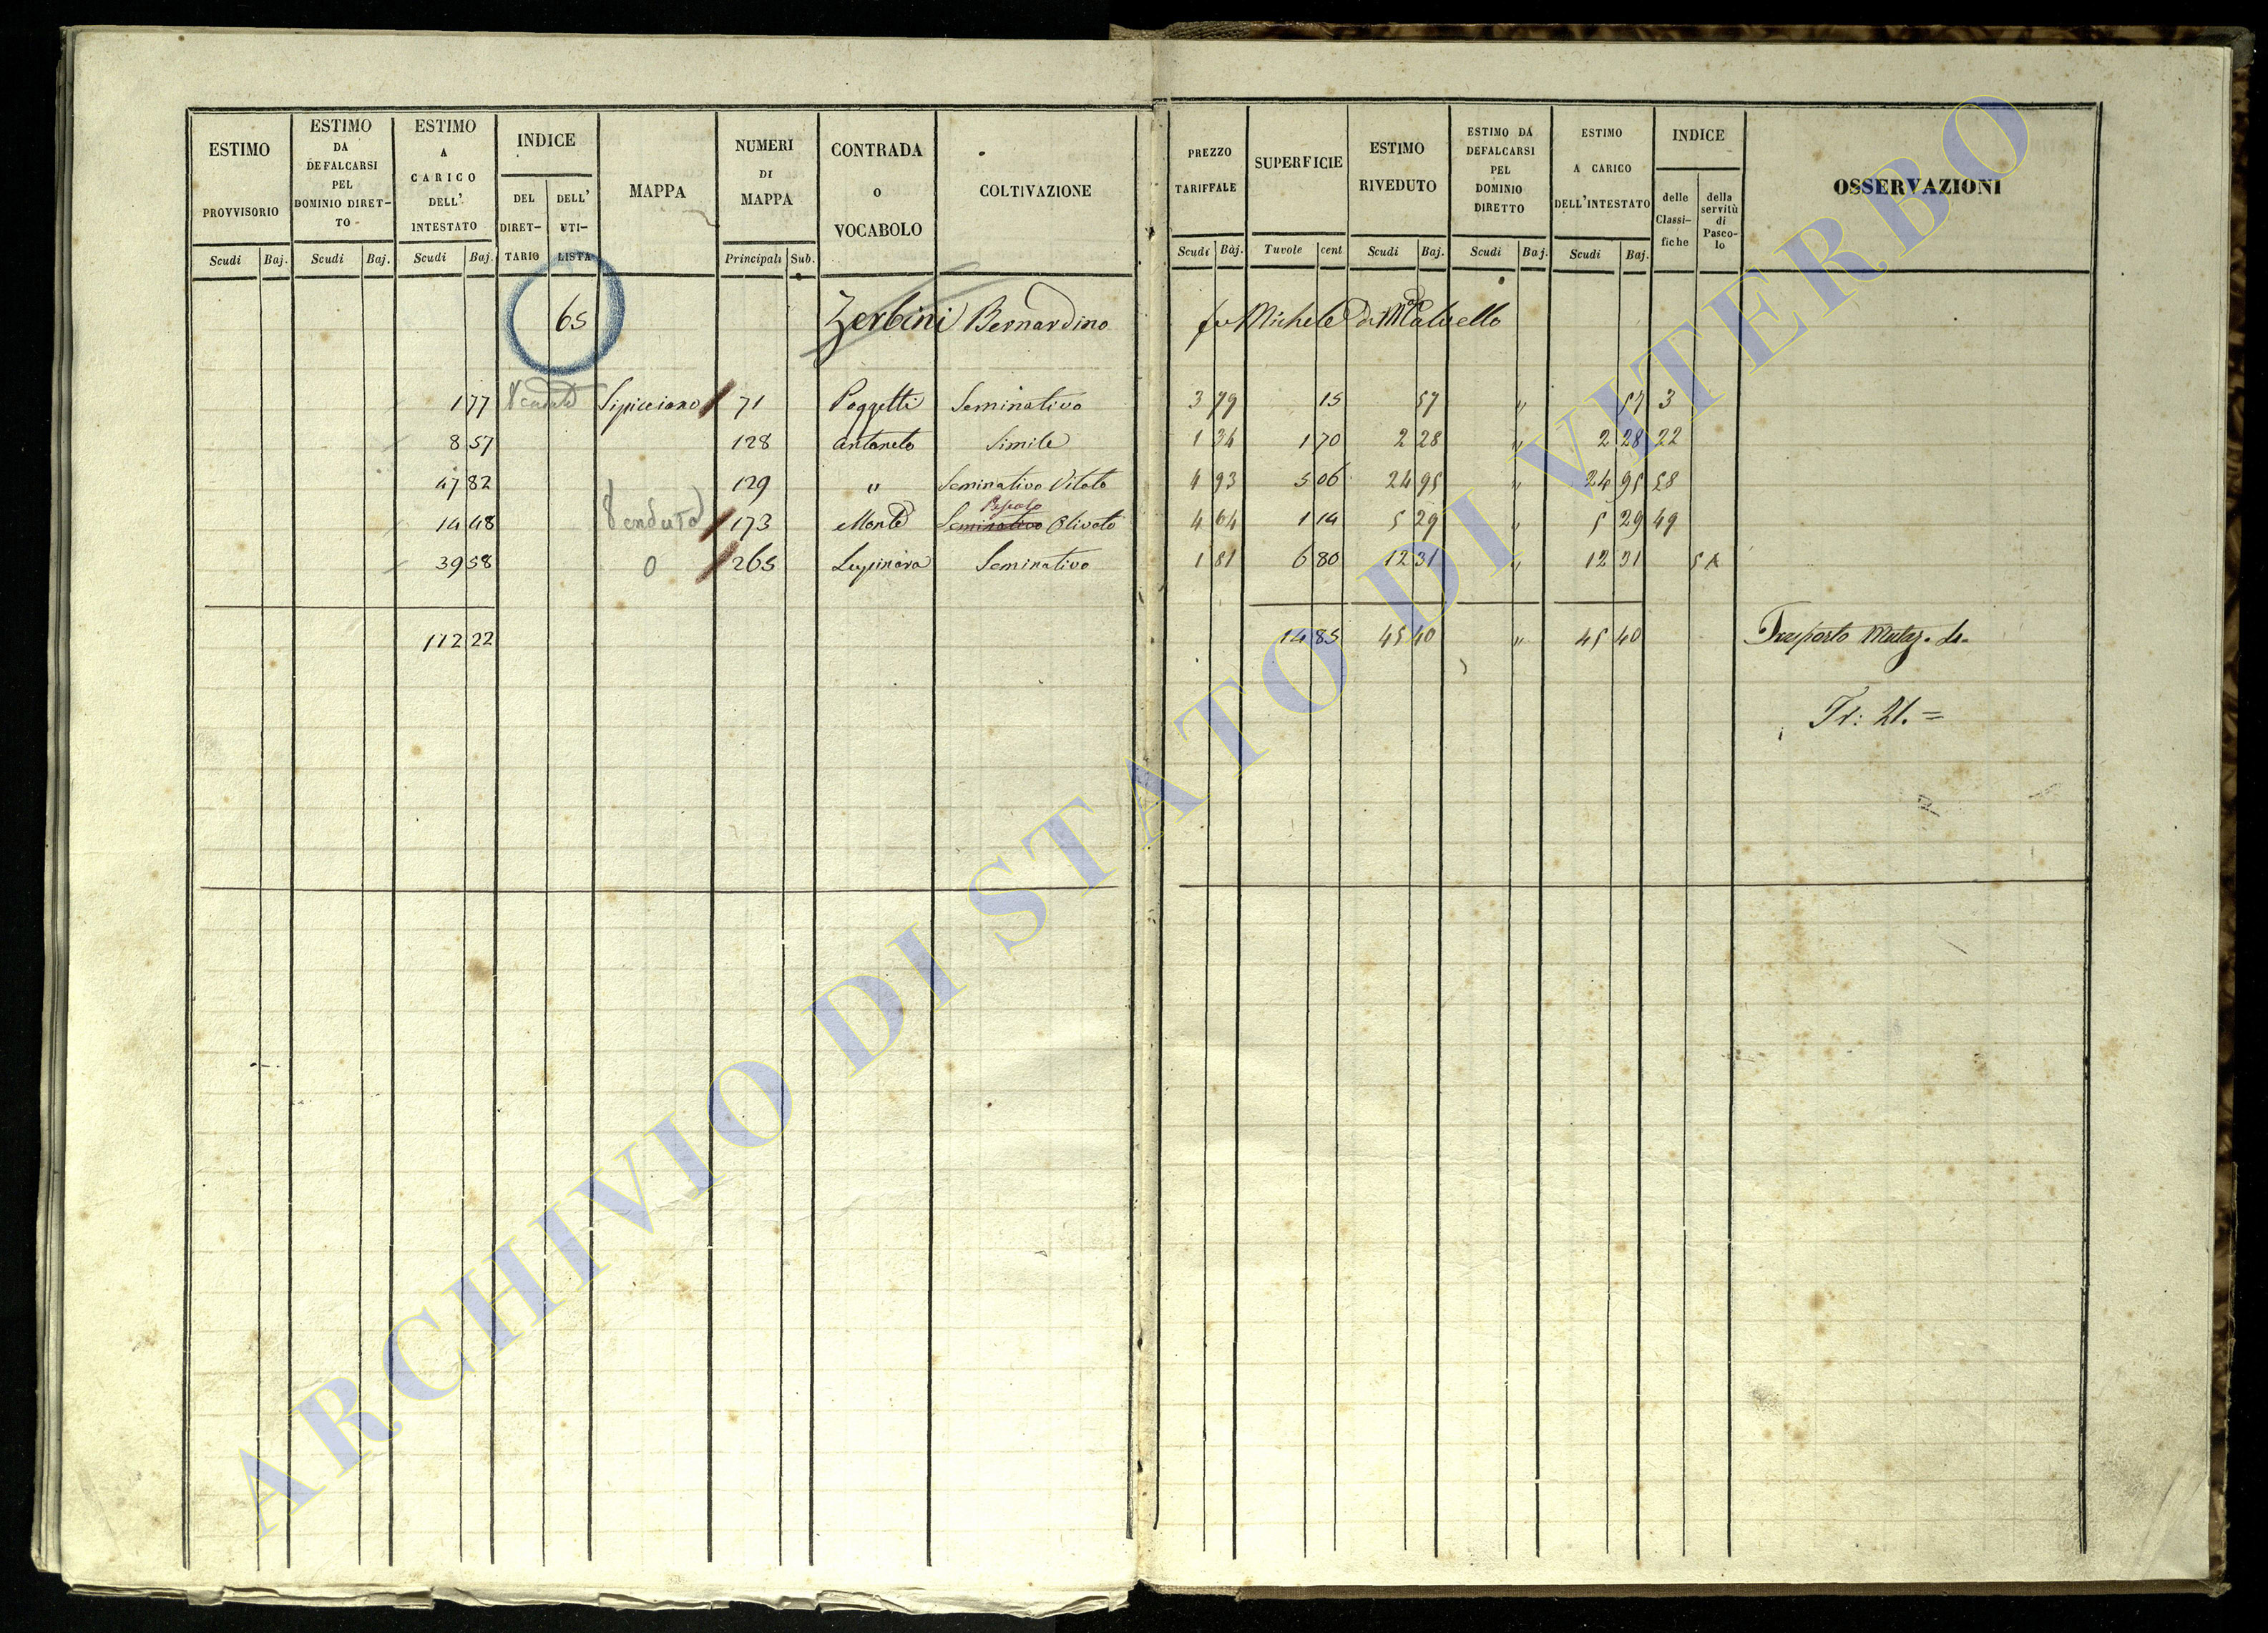 ESTIMO PROVVISORIO
ESTIMO DA DEFALCARSI PEL DOMINIO DIRETTO
ESTIMO A CARICO DELL' INTESTATO
INDICE
DEL DIRETTARIO
DELL' UTILISTA
MAPPA
NUMERI DI MAPPA
CONTRADA O VOCABOLO
COLTIVAZIONE
PREZZO TARIFFALE
SUPERFICIE
ESTIMO RIVEDUTO
ESTIMO DA DEFALCARSI PEL DOMINIO DIRETTO
ESTIMO A CARICO DELL'INTESTATO
INDICE
delle Classifiche
della servitù di Pascolo
OSSERVAZIONI
Scudi Baj. Scudi Baj. Scudi Baj. Principali Sub. Scudi Baj. Tavole cent Scudi Baj. Scudi Baj. Scudi Baj.
65 Zerbini Bernardino fu Michele
1 77 Venduto Sipicciano 71 Poggetti Seminativo 3 79 15 57 " 57 3
8 57 128 Antoneto Simile 1 34 1 70 2 28 " 2 28 22
47 82 129 " Seminativo Vitato 4 93 5 06 24 95 " 24 95 58
14 48 Venduto 173 Monte Seminativo Olivato 4 64 1 14 5 29 " 5 29 49
39 58 0 265 Lupinara Seminativo 1 81 6 80 12 31 " 12 31
112 22 14 85 45 40 " 45 40 Trasporto
21. =
ARCHIVIO DI STATO DI VITERBO